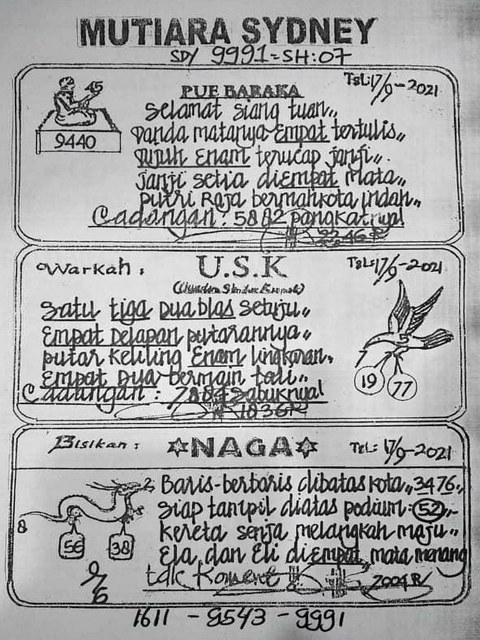 MUTIARA SYDNEY
SDY 9991=SH:07
Tsl:17/9-2021
PUE BARAKA
9440
Selamat siang tuan,,
Panda matanya empat tertulis,,
Tujuh Enam terucap janji,,
janji setia diempat mata,,
Putri Raja bermahkota indah,,
Cadangan: 5882 pangkatnya!
2246R
Warkah:
U.S.K
Tsl:17/9-2021
Satu tiga Duablas setuju,,
Empat Delapan putarannya,,
putar keliling Enam lingkaran,
Empat Dua bermain tali,,
Cadangan: 7884 Sabuknya!
1836R
19 77
Bisikan:
NAGA
Tsl: 17/9-2021
Baris-berbaris dibatas kota,,3476,,
Siap tampil diatas podium (52),,
kereta senja melangkah maju,,
Ela, dan Eli diempat mata menang
tdk Koment
2004R
8
56 38
9/6
1611 - 8543 - 9991